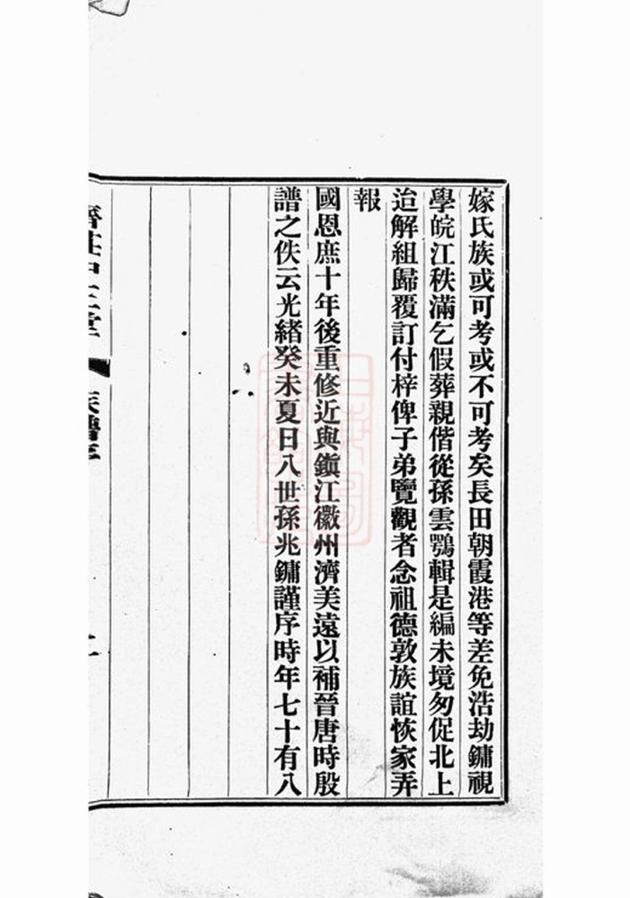 嫁氏族或可考或不可考矣長田朝霞港等差免浩劫鏞視
學皖江秩滿乞假葬親偕從孫雲鶚輯是編未境匆促北上
迨解組歸覆訂付梓俾子弟覽觀者念祖德敦族誼恢家弄
報
國恩庶十年後重修近與鎭江徽州濟美遠以補晉唐時殷
譜之佚云光緒癸未夏日八世孫兆鏞謹序時年七十有八